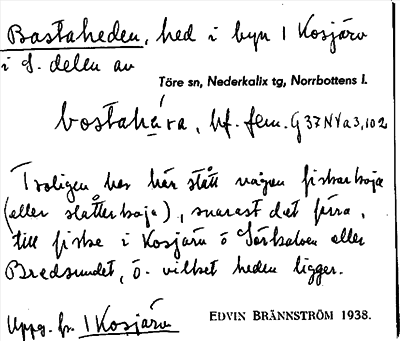 Bastaheden, hed i byn 1 Kosjärv
i S. delen av
Töre sn, Nederkalix tg, Norrbottens l.
bostahára, bf. fem. G 37 N Va 3, 102
Troligen har här stått någon fiskarkoja
(eller slåtterkoja), snarast det förra,
till fiske i Kosjärv o
Bredsundet, ö. vilket heden ligger.
Uppg. fr. 1 Kosjärv
EDVIN BRÄNNSTRÖM 1938.